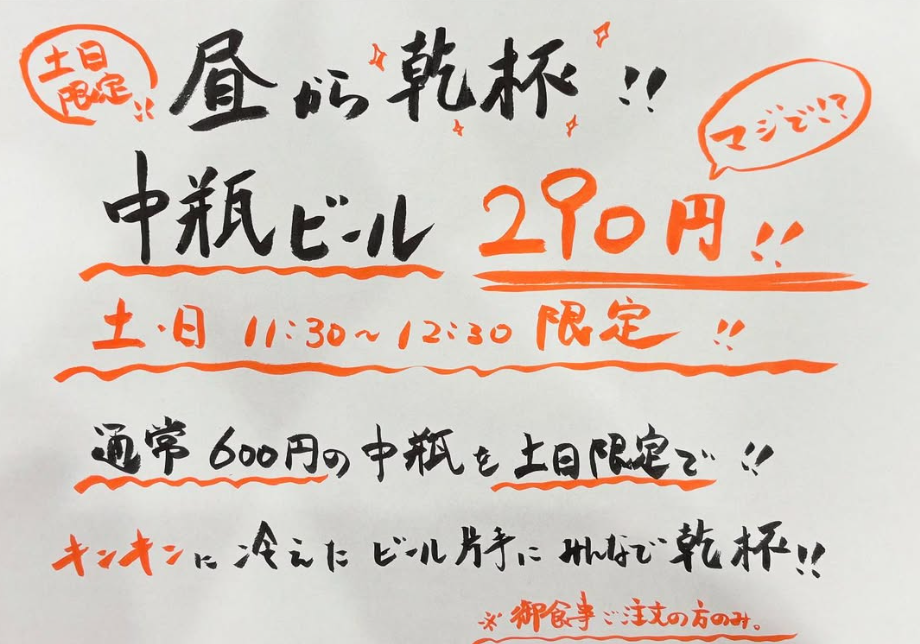 土日
限定!!
昼から乾杯!!
マジで!?
中瓶ビール 290円!!
土・日 11:30~12:30 限定!!
通常600円の中瓶を土日限定で!!
キンキンに冷えたビール片手にみんなで乾杯!!
※御食事ご注文の方のみ。